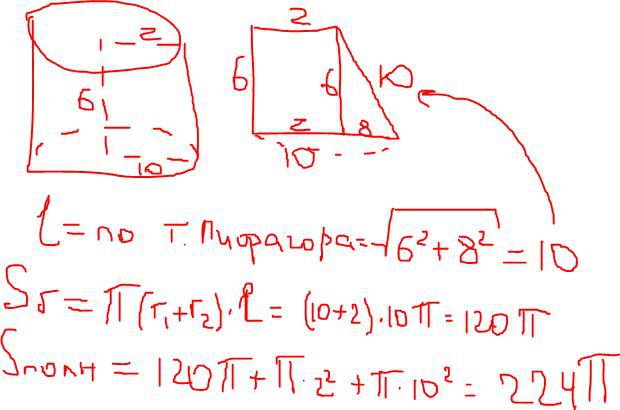 2
6
10
2
6
6
10
2
8
10
l = по т. Пифагора = √(6² + 8²) = 10
Sб = π(r₁+r₂)·l = (10+2)·10π = 120π
Sполн = 120π + π·2² + π·10² = 224π